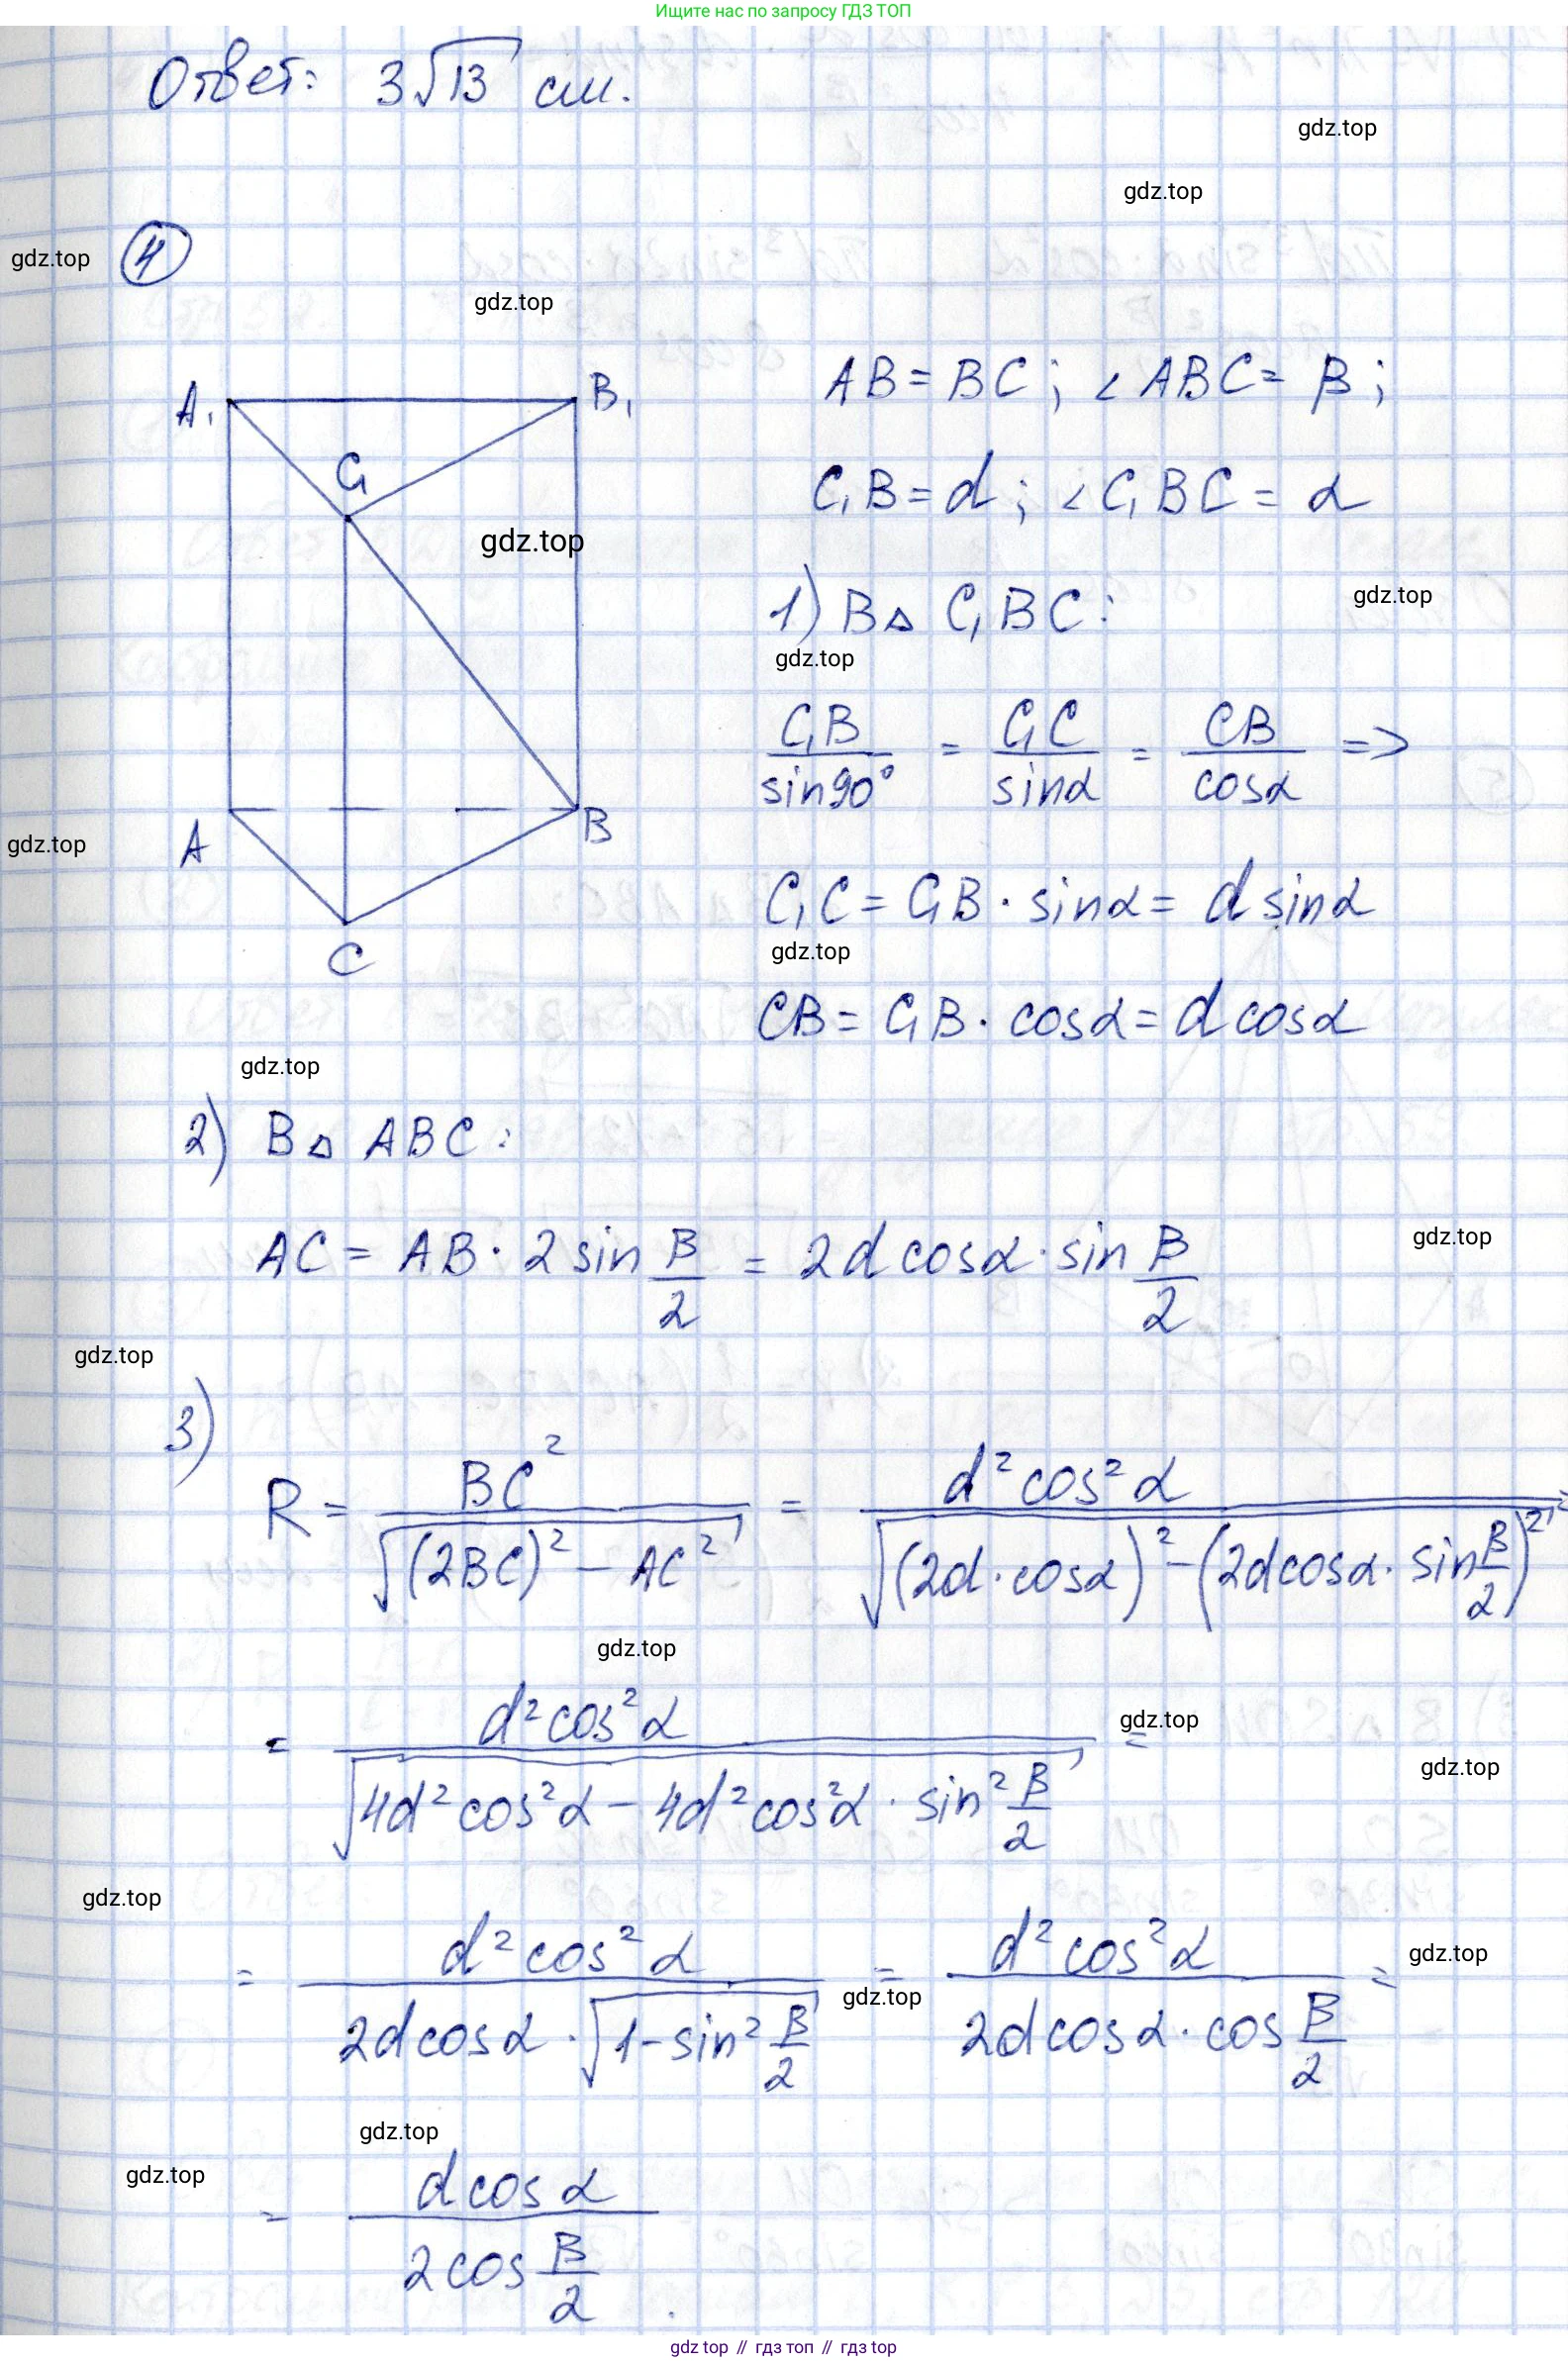 Ищите нас по запросу ГДЗ ТОП
Ответ: 3√13 см.
gdz.top
gdz.top
gdz.top
4
gdz.top
A₁
B₁
C₁
AB = BC; ∠ABC = β;
C₁B = d; ∠C₁BC = α
gdz.top
1) В △ C₁BC:
gdz.top
gdz.top
C₁B/sin90° = C₁C/sinα = CB/cosα =>
A
B
C
gdz.top
C₁C = C₁B · sinα = d sinα
gdz.top
CB = C₁B · cosα = d cosα
gdz.top
2) В △ ABC:
AC = AB · 2 sin β/2 = 2d cosα · sin β/2
gdz.top
gdz.top
3)
R = BC²/√((2BC)² − AC²) = d² cos² α/√((2d · cosα)² − (2d cosα · sin β/2)²) =
gdz.top
= d² cos² α/√(4d² cos² α − 4d² cos² α · sin² β/2) =
gdz.top
gdz.top
gdz.top
= d² cos² α/(2d cos α · √(1 − sin² β/2)) = d² cos² α/(2d cos α · cos β/2) =
gdz.top
gdz.top
gdz.top
gdz.top
= d cos α/(2 cos β/2).
gdz top // гдз топ // гдз top